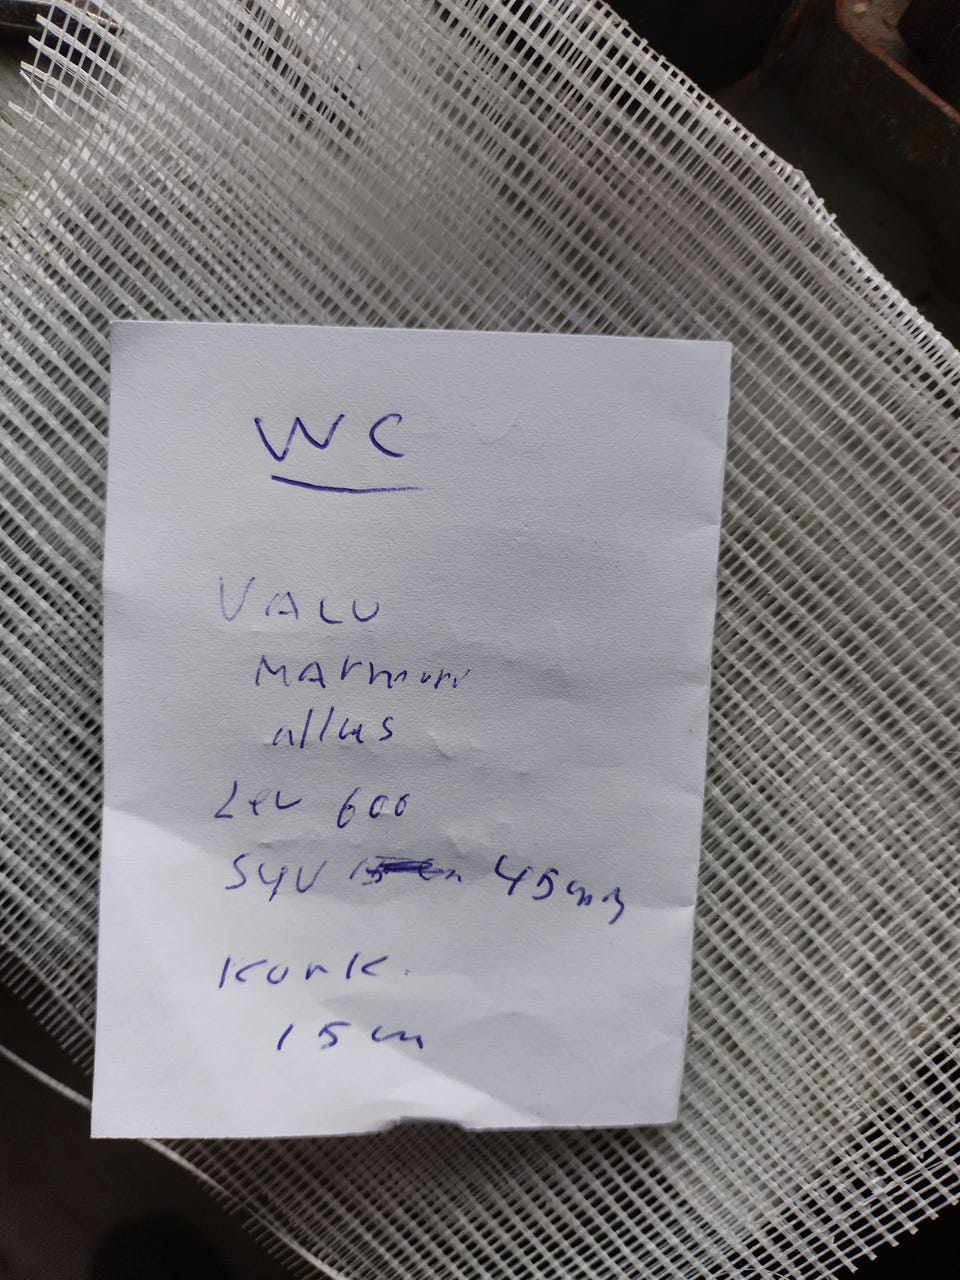 WC
VALU
MARMORI
allas
Lev 600
SYV 45cm
KORK.
15cm